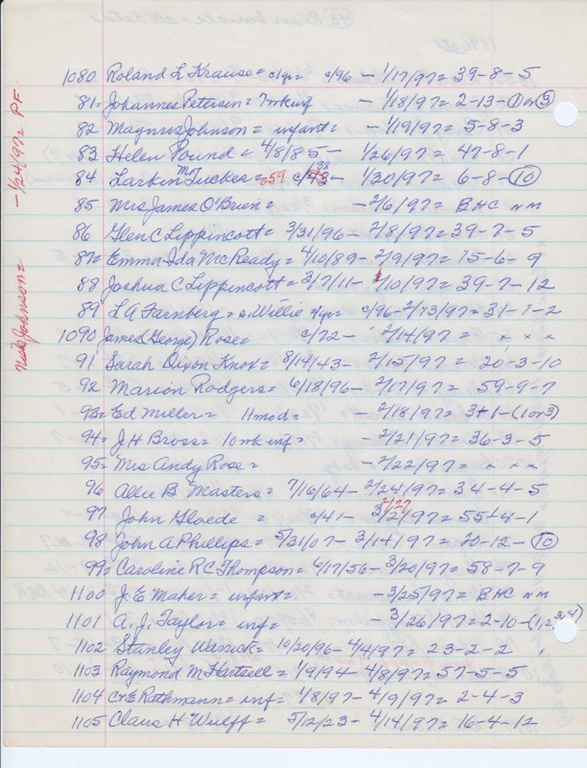 1080 Roland L Krause = c/yr = c/96 - 1/17/97 = 39-8-5
81 = Johannes Petersen = 7mk inf - 1/18/97 = 2-13-1 or 5
82 Magnus Johnson = infant = - 1/19/97 = 5-8-3
83 Helen Pound = 4/8/85 - 1/26/97 = 47-8-1
84 Larkin M Tucker = - 1/20/97 = 6-8-10
85 Mrs James O'Brien = - 2/6/97 = BHC nm
86 Glen C Lippincott = 3/31/96 - 2/8/97 = 39-7-5
87 = Emma Ida McReady = 4/10/89 - 2/9/97 = 15-6-9
88 Joshua C Lippincott = 3/7/11 - 2/10/97 = 39-7-12
89 L A Farnberg = Willie c/96 - 2/13/97 = 31-1-2
1090 James (George) Rose = c/72 - 2/14/97 = x x x
91 Sarah Dixon Knox = 8/14/43 - 2/15/97 = 20-3-10
92 Marion Rodgers = 6/18/96 - 2/17/97 = 59-9-7
93 = Ed Miller = 11 mod = - 2/18/97 = 3+1-(1 or 3)
94 = J H Bross = 10 mk inf = - 2/21/97 = 36-3-5
95 = Mrs Andy Rose = - 2/22/97 = x x x
96 Allie B Masters = 7/16/64 - 2/24/97 = 34-4-5
2/27
97 John Gloede = c/41 - 3/2/97 = 55-4-1
98 John A Phillips = 5/31/07 - 3/14/97 = 20-12-10
99 = Caroline R C Thompson = 6/17/56 - 3/20/97 = 58-7-9
1100 J. E Maher = infant = - 3/25/97 = BHC nm
1101 A. J. Taylor = inf = - 3/26/97 = 2-10-(1,2,3,4)
1102 Stanley Warrick = 10/20/96 - 4/4/97 = 23-2-2
1103 Raymond M Hartsell = 1/9/94 - 4/8/97 = 57-5-5
1104 C+E Rathmann = inf = 1/8/97 - 4/9/97 = 2-4-3
1105 Claus H Wulff = 5/12/23 - 4/14/97 = 16-4-12
Johnson = - 1/24/97 = PF